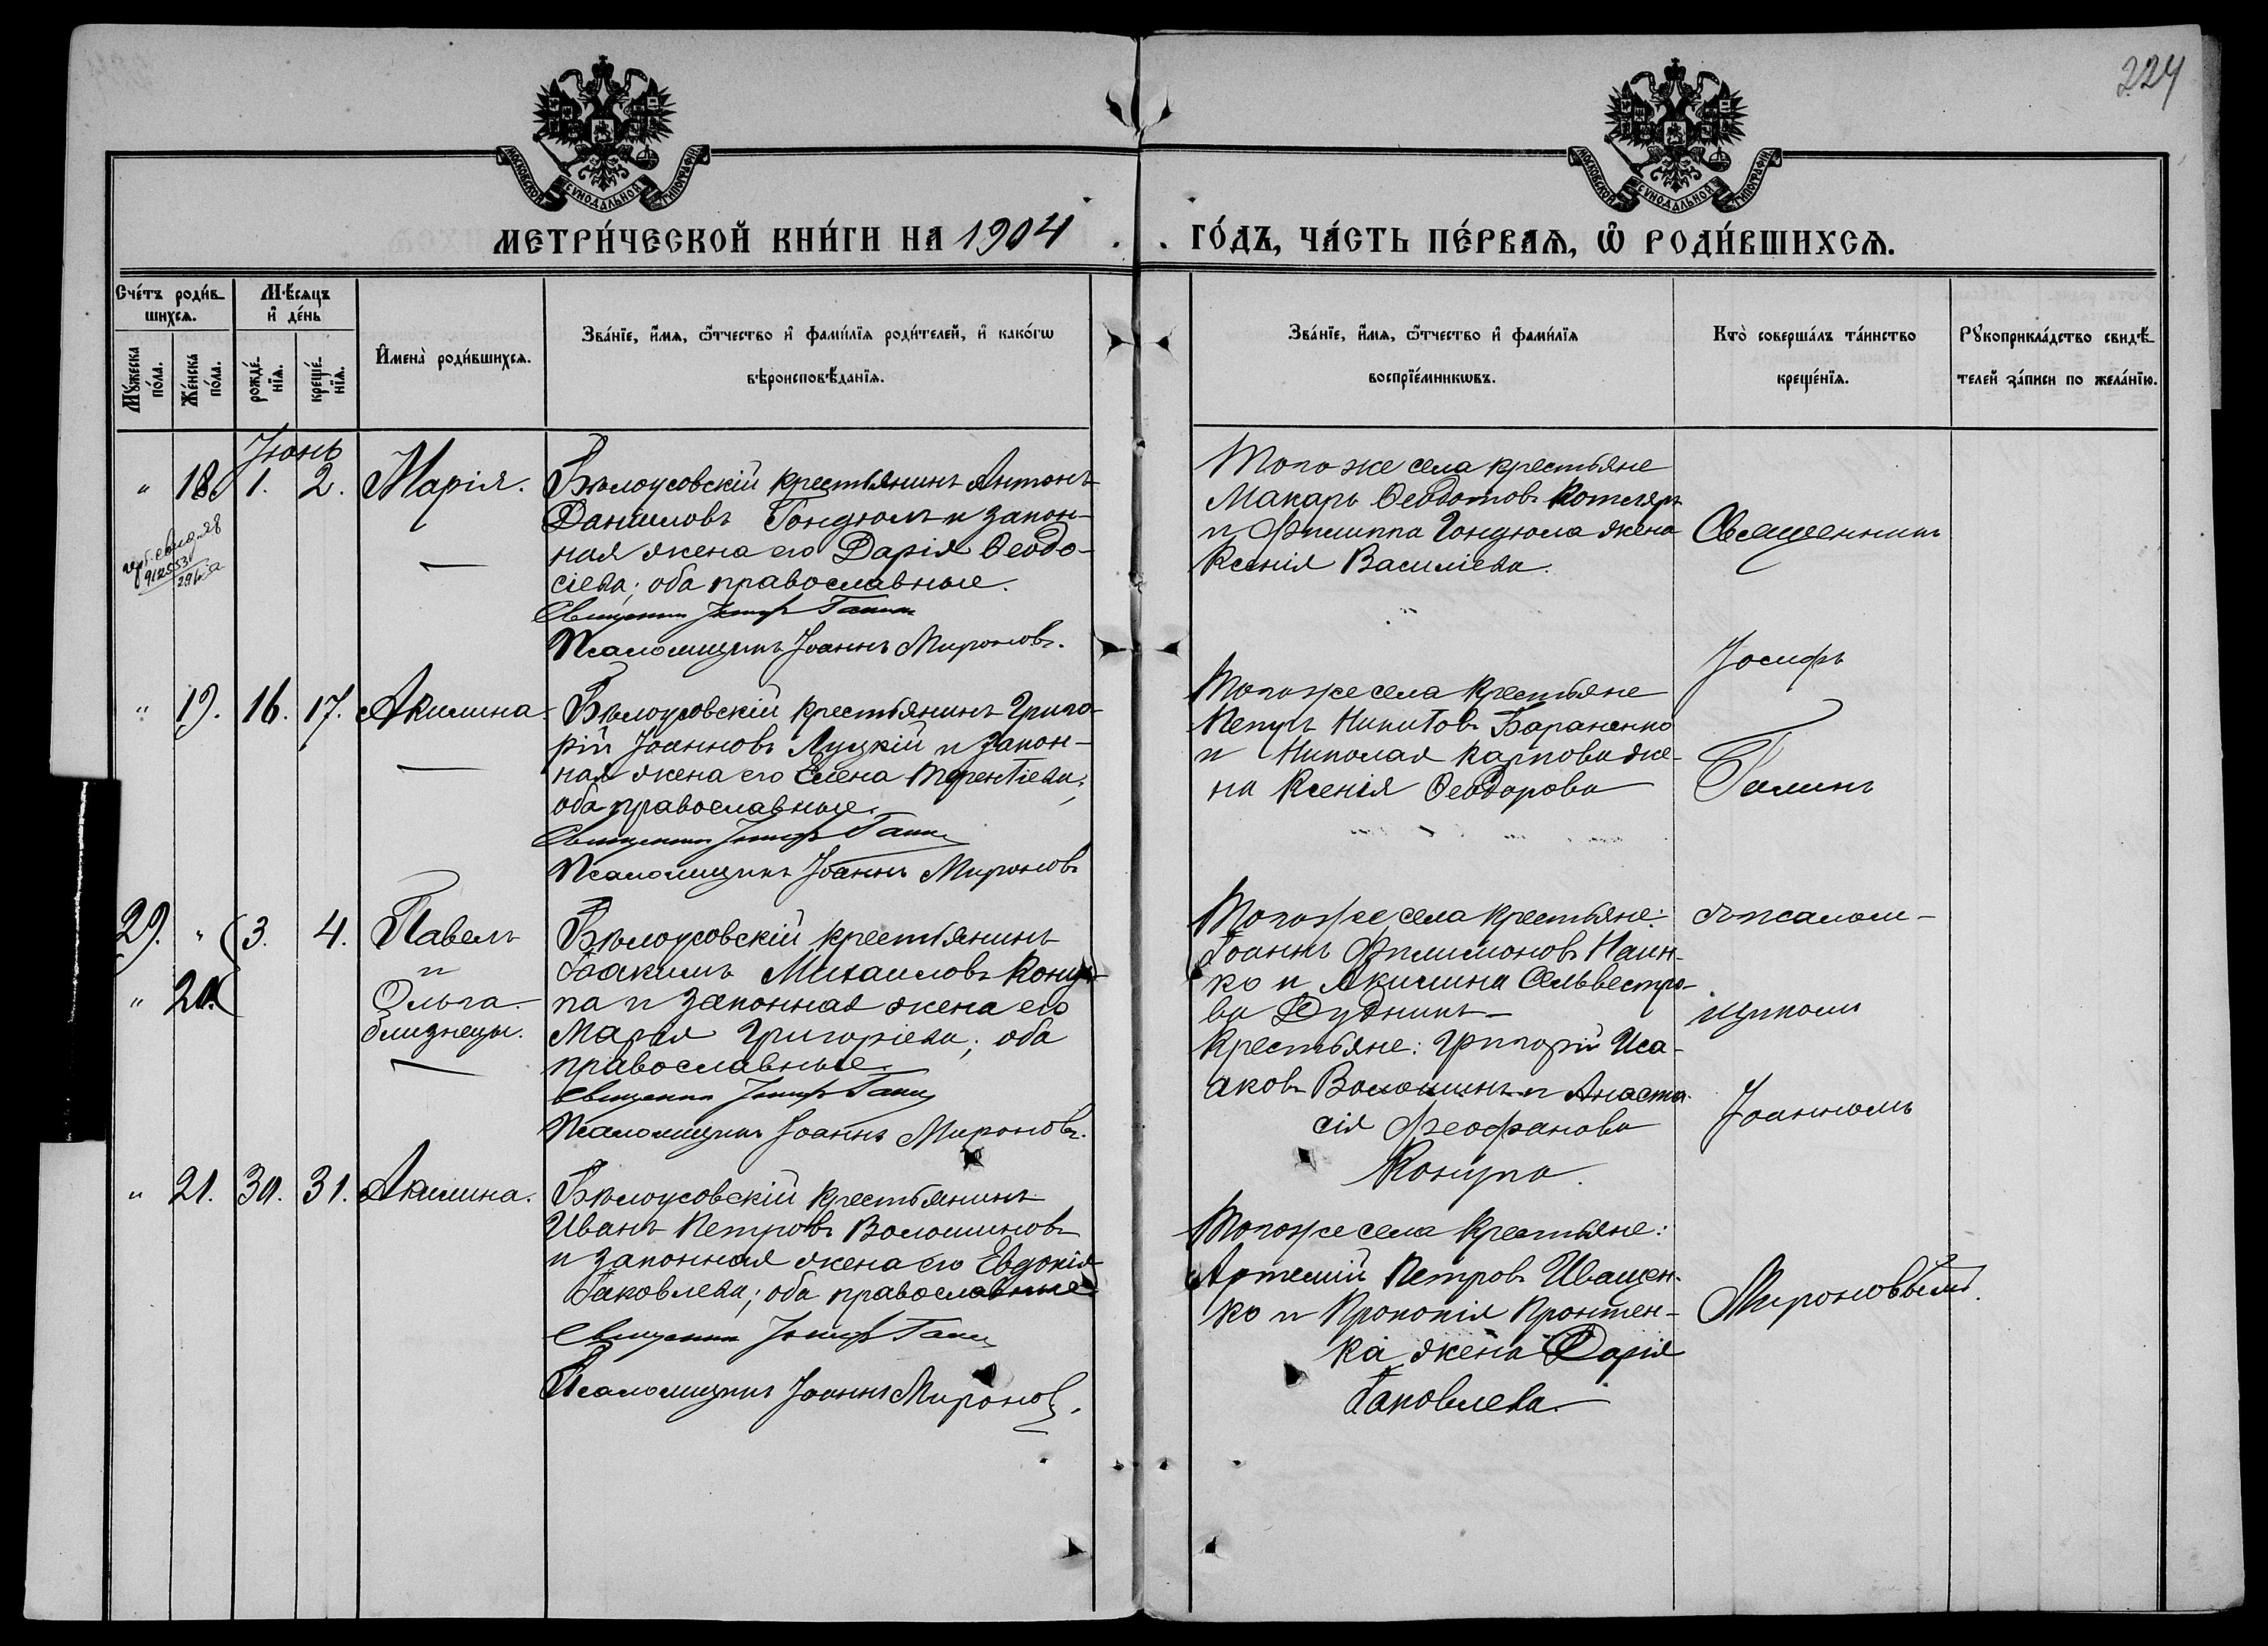 224
МОСКОВСКОЙ СѴНОДАЛЬНОЙ ТИПОГРАФІИ
МОСКОВСКОЙ СѴНОДАЛЬНОЙ ТИПОГРАФІИ
МЕТРИ́ЧЕСКОЙ КНИ́ГИ НА 1904
ГО́ДЪ, ЧА́СТЬ ПЕ́РВАѦ, Ѿ РОДИ́ВШИХСѦ.
Сче́тъ роди́в-
шихсѧ.
Мꙋ́жеска по́ла.
Же́нска по́ла.
Мѣ́сѧцъ
и҆ де́нь
рожде́-
нїѧ.
креще́-
нїѧ.
И҆мена̀ роди́вшихсѧ.
Зва́нїе, и҆́мѧ, ѻ҆́тчество и҆ фами́лїѧ роди́телей, и҆ како́гѡ
вѣроисповѣ́данїѧ.
Зва́нїе, и҆́мѧ, ѻ҆́тчество и҆ фами́лїѧ
воспрїе́мникѡвъ.
Кто̀ соверша́лъ та́инство
креще́нїѧ.
Рꙋкоприкла́дство свидѣ́-
телей за́писи по жела́нїю.
Іюнь
" 18. 1. 2. Марія.
Бѣлоусовскій крестьянинъ Антонъ
Даниловъ Гондюлъ и закон-
ная жена его Дарія Ѳеодо-
сіева; оба православные.
Священникъ Іосифъ Галинъ
Псаломщикъ Іоаннъ Мироновъ.
Того же села крестьяне
Макаръ Ѳеодотовъ Котляръ
и Филиппа Гондюла жена
Ксенія Василіева.
Священникъ
Іосифъ
Галинъ
" 19. 16. 17. Акилина
Бѣлоусовскій крестьянинъ Григо-
рій Іоанновъ Луцкій и закон-
ная жена его Елена Терентіева;
оба православные.
Священникъ Іосифъ Галинъ
Псаломщикъ Іоаннъ Мироновъ
Того же села крестьяне
Петръ Никитовъ Бараненко
и Николая Карпова же-
на Ксенія Ѳеодорова
29. " 3. 4. Павелъ
и
" 20. Ольга
близнецы.
Бѣлоусовскій крестьянинъ
Іоакимъ Михаиловъ Конуп-
па и законная жена его
Марія Григоріева; оба
православные.
Священникъ Іосифъ Галинъ
Псаломщикъ Іоаннъ Мироновъ.
Того же села крестьяне:
Іоаннъ Филимоновъ
ко и Акилина Сельвестро-
ва Дудникъ
крестьяне: Григорій Иса-
аковъ Волошинъ и Анаста-
сія Феофанова
Конупа.
съ псалом-
щикомъ
Іоанномъ
Мироновымъ.
" 21. 30. 31. Акилина.
Бѣлоусовскій крестьянинъ
Иванъ Петровъ Волошиновъ
и законная жена его Евдокія
Іаковлева; оба православные
Священникъ Іосифъ Галинъ
Псаломщикъ Іоаннъ Мироновъ.
Того же села крестьяне:
Артемій Петровъ Иващен-
ко и Прокопія Кронтен-
ка жена Дарія
Іаковлева.